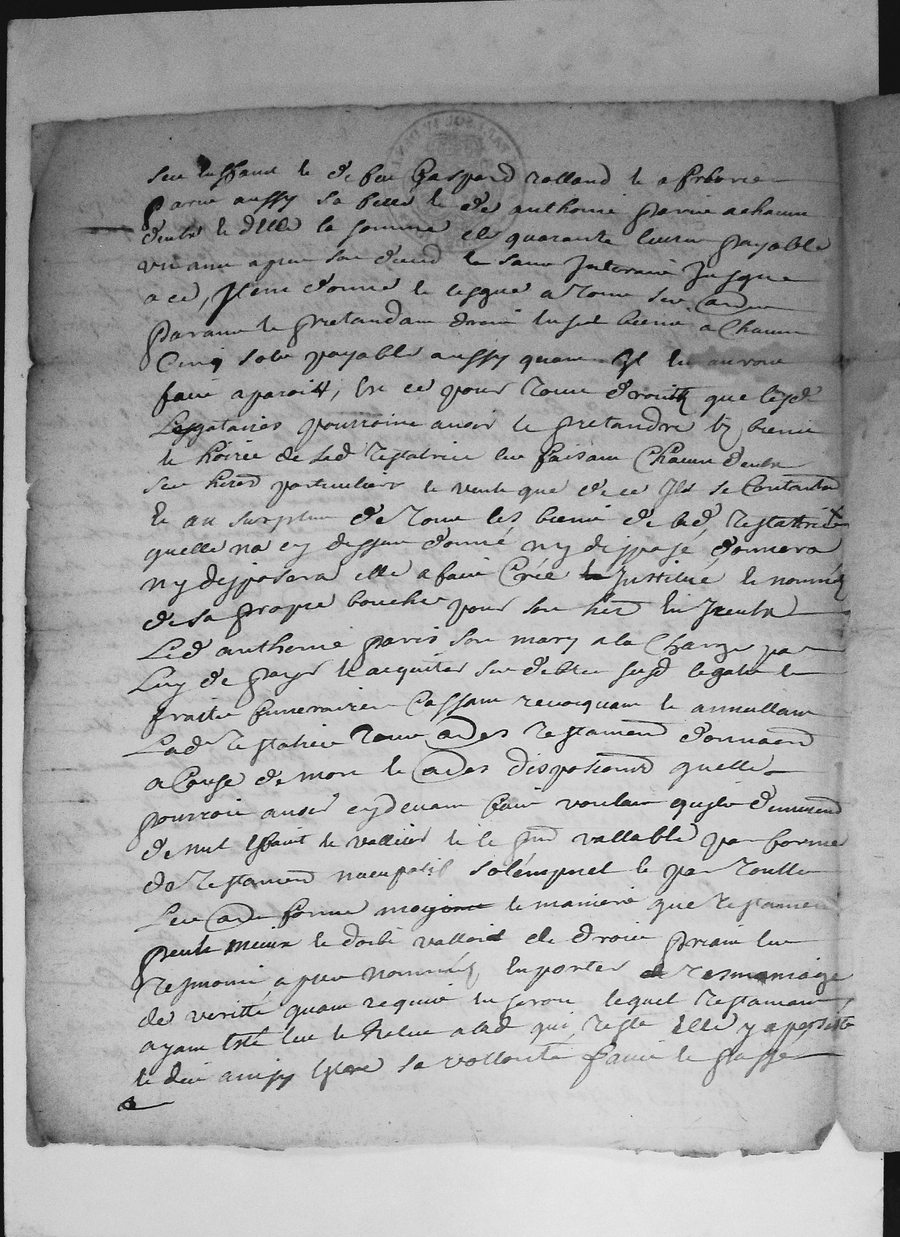 ses enffans et de feu Gaspard rolland et a
parie aussy sa fille et de anthoine parie a chacun
d'eulx et d'elle la somme de quarante livres payable
un an apres son deced et sans jusque
a ce, Item donne et legue a tous ses autres
parans et pretandans droit en ses biens a chacun
Cinq sols payable aussy quant Ils luy auront
fait aparoitre, Et ce pour tous droits que lesd
Legataires pourroint avoir et pretandre es biens
et hoirie de lad testatrice les faisant chacun d'eulx
ses heres particuliers et veult que de ce Ils se contantent
Et au surplus de tous les biens de lad testatrice
quelle na cy dessus donné ny disposé donnera
ny disposera elle a fait Créé Institué et nommé
de sa propre bouche pour son here
Led anthoine paris son mary a la charge par
Luy de payer et acquiter ses debtes susd legats et
fraits funeraires Cassant revocquant et annullant
Lad testatrice tous autres testament donnaons
a Cause de mort et autres dispositions quelle
pourroit avoir cydevant fait voulant quils demeurent
de nul effait et valleur et le pnt vallable par forme
de testament nuncupatif solempnel et par toutte
autre forme moyent et maniere que testament
peult mieux et doibt valloir de droit priant les
tesmoins apres nommés en porter tesmoniage
de veritté quant requis en seront lequel testament
ayant esté leu et releu a lad qui teste Elle y a persisté
et dit ainsy estre sa vollonté fait et passé